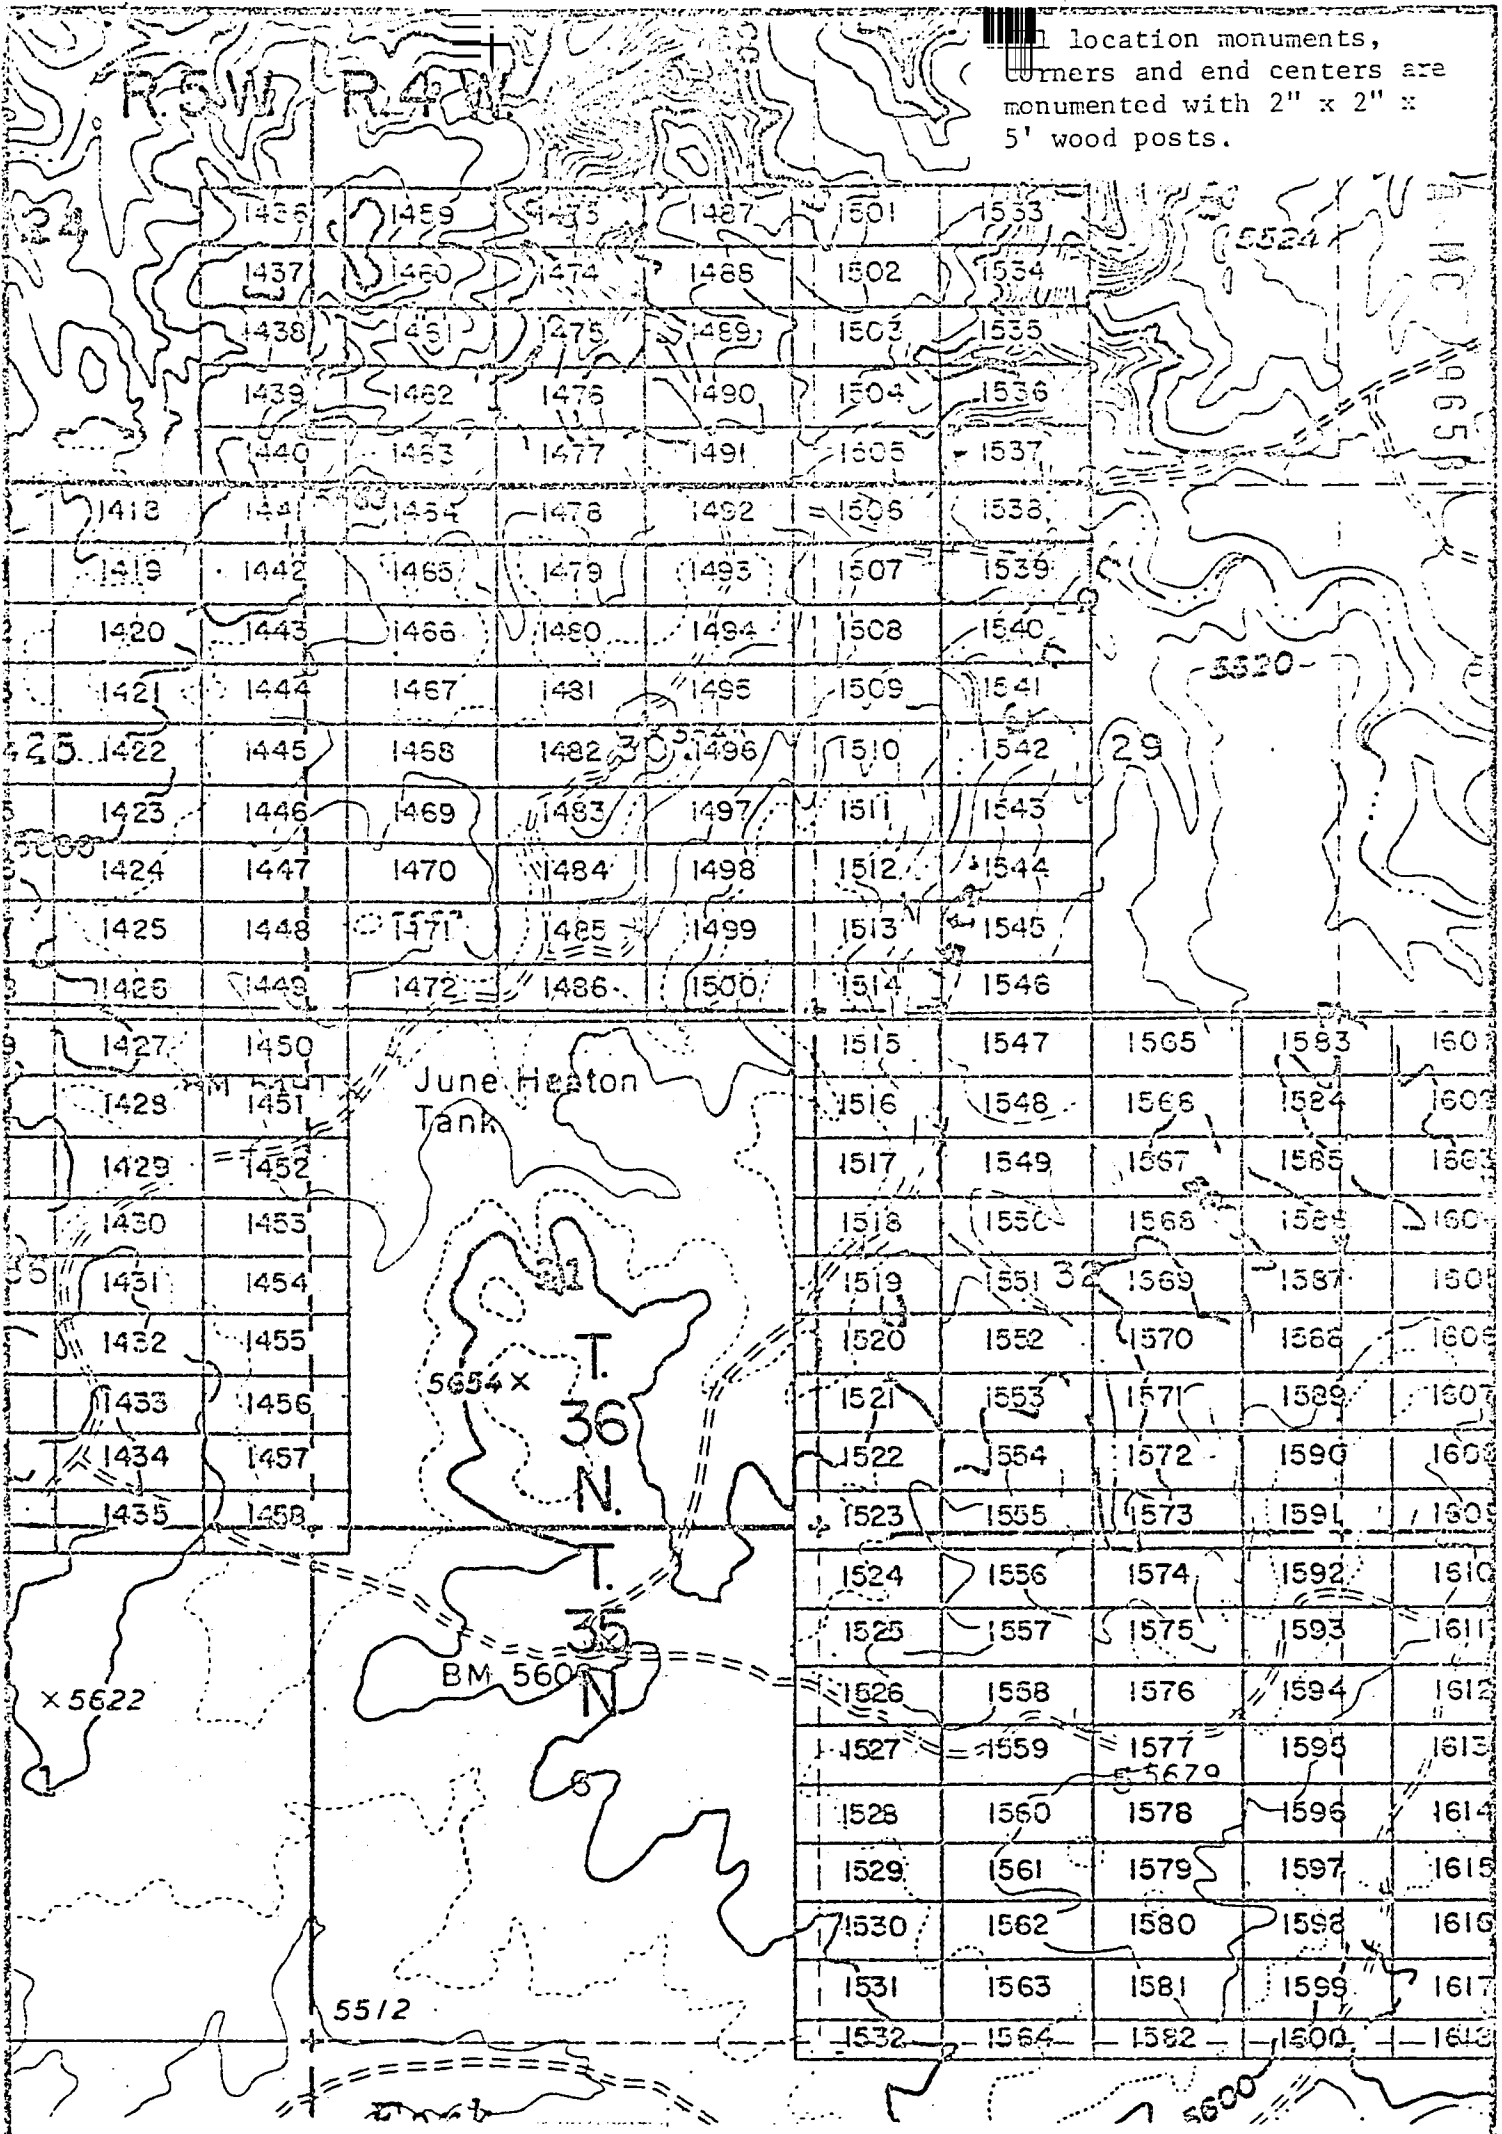 location monuments,
corners and end centers are
monumented with 2" x 2" x
5' wood posts.
R.5W. R.4W.
24 1436 1459 1473 1487 1501 1533 5524
1437 1460 1474 1488 1502 1534
1438 1461 1475 1489 1503 1535
1439 1462 1476 1490 1504 1536
1440 1463 1477 1491 1505 1537
1418 1441 1464 1478 1492 1506 1538
1419 1442 1465 1479 1493 1507 1539
1420 1443 1466 1480 1494 1508 1540
1421 1444 1467 1481 1495 1509 1541 5520
1422 1445 1468 1482 30 1496 1510 1542 29
1423 1446 1469 1483 1497 1511 1543
1424 1447 1470 1484 1498 1512 1544
1425 1448 1471 1485 1499 1513 1545
1426 1449 1472 1486 1500 1514 1546
1427 1450 1515 1547 1565 1583
June Heaton
Tank
1428 1451 1516 1548 1566 1584
1429 1452 1517 1549 1567 1585
1430 1453 1518 1550 1568 1586
36 1431 1454 31 1519 1551 32 1569 1587
1432 1455 1520 1552 1570 1588
T.
5654 ×
1433 1456 36 1521 1553 1571 1589 1607
1434 1457 1522 1554 1572 1590 1608
N.
1435 1458 1523 1555 1573 1591 1609
T.
1524 1556 1574 1592 1610
35
1525 1557 1575 1593 1611
BM 560
N
× 5622 1526 1558 1576 1594 1612
1527 1559 1577 1595 1613
1 6 5 5679
1528 1560 1578 1596 1614
1529 1561 1579 1597 1615
1530 1562 1580 1598 1616
1531 1563 1581 1599 1617
5512
1532 1564 1582 1600 1618
5600